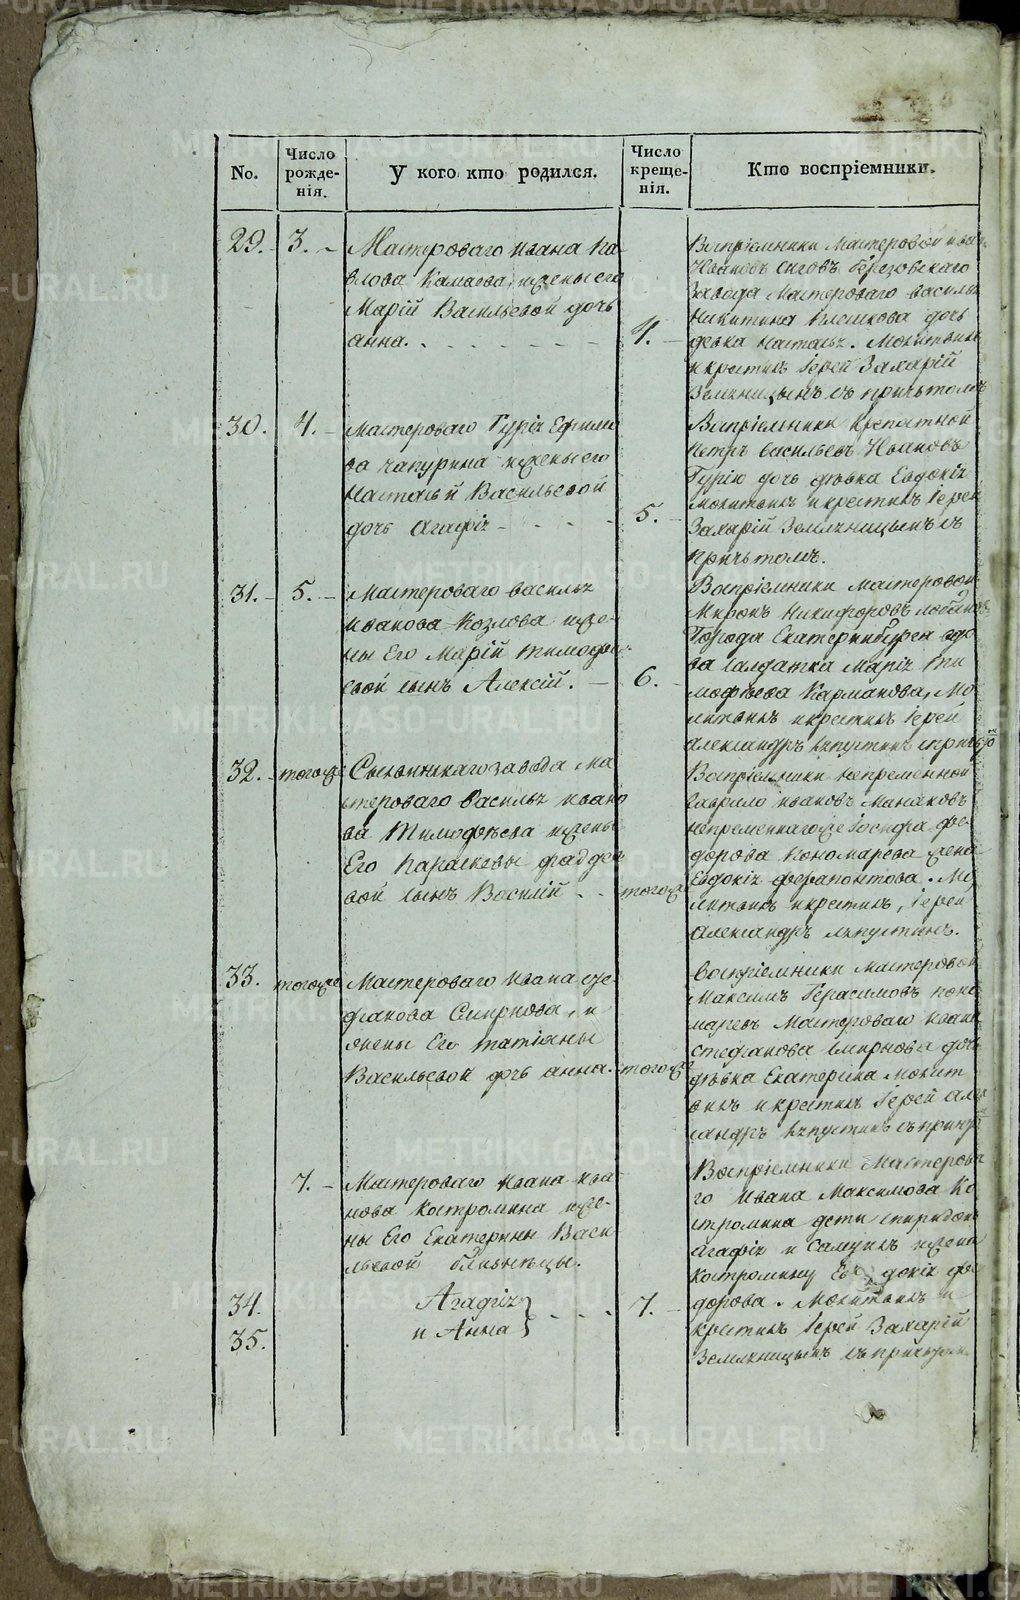 No.
Число рожде-нія.
У кого кто родился.
Число креще-нія.
Кто воспріемники.
29. 3.
Мастероваго Ивана Па
влова Камаева, и жены его
Маріи Васильевой дочь
анна.
4.
Воспріемники Мастеровой
Ивановъ Сиговъ Березовскаго
Завода Мастероваго василья
Никитина дочь
девка Наталья. Молитвилъ
и крестилъ Іерей Захарій
Земляницынъ съ причтомъ
30. 4.
Мастероваго Гурія Ефимо
ва Чапурина и жены его
Натальи Васильевой
дочь Агафія
5.
Воспріемники
Петръ Васильевъ Ивановъ
Гурія дочь дѣвка Евдокія
Молитвилъ и крестилъ Іерей
Захарій Земляницынъ съ
причтомъ.
31. 5.
Мастероваго василья
иванова Козлова и же-
ны Его Маріи Тимофее
вой сынъ Алексій.
6.
Воспріемники мастеровой
Миронъ Никифоровъ
Города Екатеринбурга вдо
ва салдатка Марія Ти
мофѣева Карманова, Мо
литвилъ и крестилъ Іерей
Александръ Ляпустинъ
32. тогоже
Сылвинскаго завода Ма
стероваго Василья ивано
ва Тимофѣева и жены
Его Параскевы фаддее
вой сынъ Василій
тогоже
Воспріемники непременной
Гаврило ивановъ Манаковъ
непременнагоже Іосифа фе-
дорова Пономарева жена
Евдокія ферапонтова. Мо
литвилъ и крестилъ, Іерей
Александръ Ляпустинъ.
33. тогоже
Мастероваго Ивана сте-
фанова Смирнова, и
жены Его Татіяны
Васильевой дочь анна.
тогоже
Воспріемники мастеровой
Максимъ Герасимовъ поно
маревъ Мастероваго ивана
стефанова Смирнова дочь
дѣвка Екатерина Молит
вилъ и крестилъ Іерей але
ксандръ Ляпустинъ съ причт
7.
Мастероваго Ивана ива
нова Костромина и же-
ны Его Екатерины Васи
льевой близнецы.
34. Агафія
35. и Анна
7.
Воспріемники Мастерова
го Ивана Максимова Ко
стромина дети спиридонъ
Агафія и Самуилъ жена
Костромину Евдокія фе
дорова. Молитвилъ и
крестилъ Іерей Захарій
Земляницынъ съ причтом
METRIKI.GASO-URAL.RU